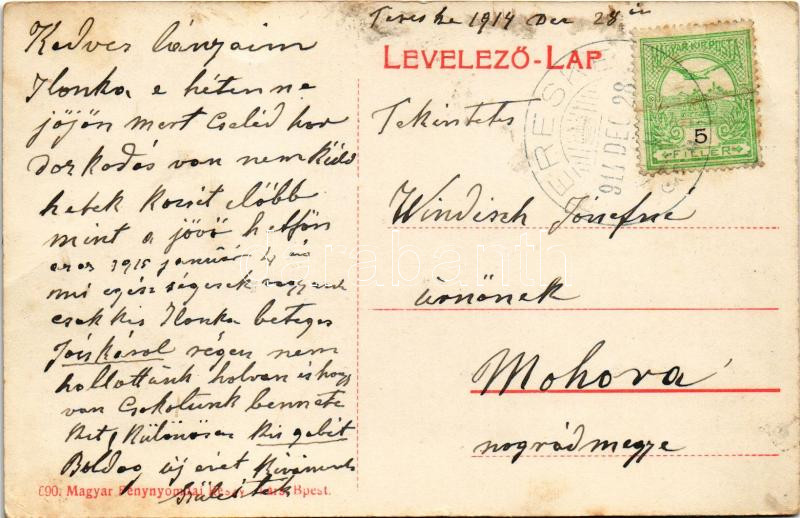 Tereske 1914 Dec 28 án
LEVELEZŐ-LAP
MAGYAR KIR. POSTA
5
FILLÉR
914 DEC 28
Kedves lányaim
Ilonka e héten ne
jöjön mert Cseléd hor
dorkodás van nem küld
hetek kocsit előbb
mint a jövő hetfőn
azaz 1915 január 4 én
mi egészségesek vagyunk
csak kis Ilonka beteges
Jóskáról régen nem
hallottunk holvan is hogy
van Csokolunk bennete
ket, Különösen kis gabit
Boldog új évet kivánunk
Szüleitek
Tekintetes
Windisch Józsefné
úrnőnek
Mohora
nográdmegye
690. Magyar Fénynyomdai Részv. Társ. Bpest.
darabanth